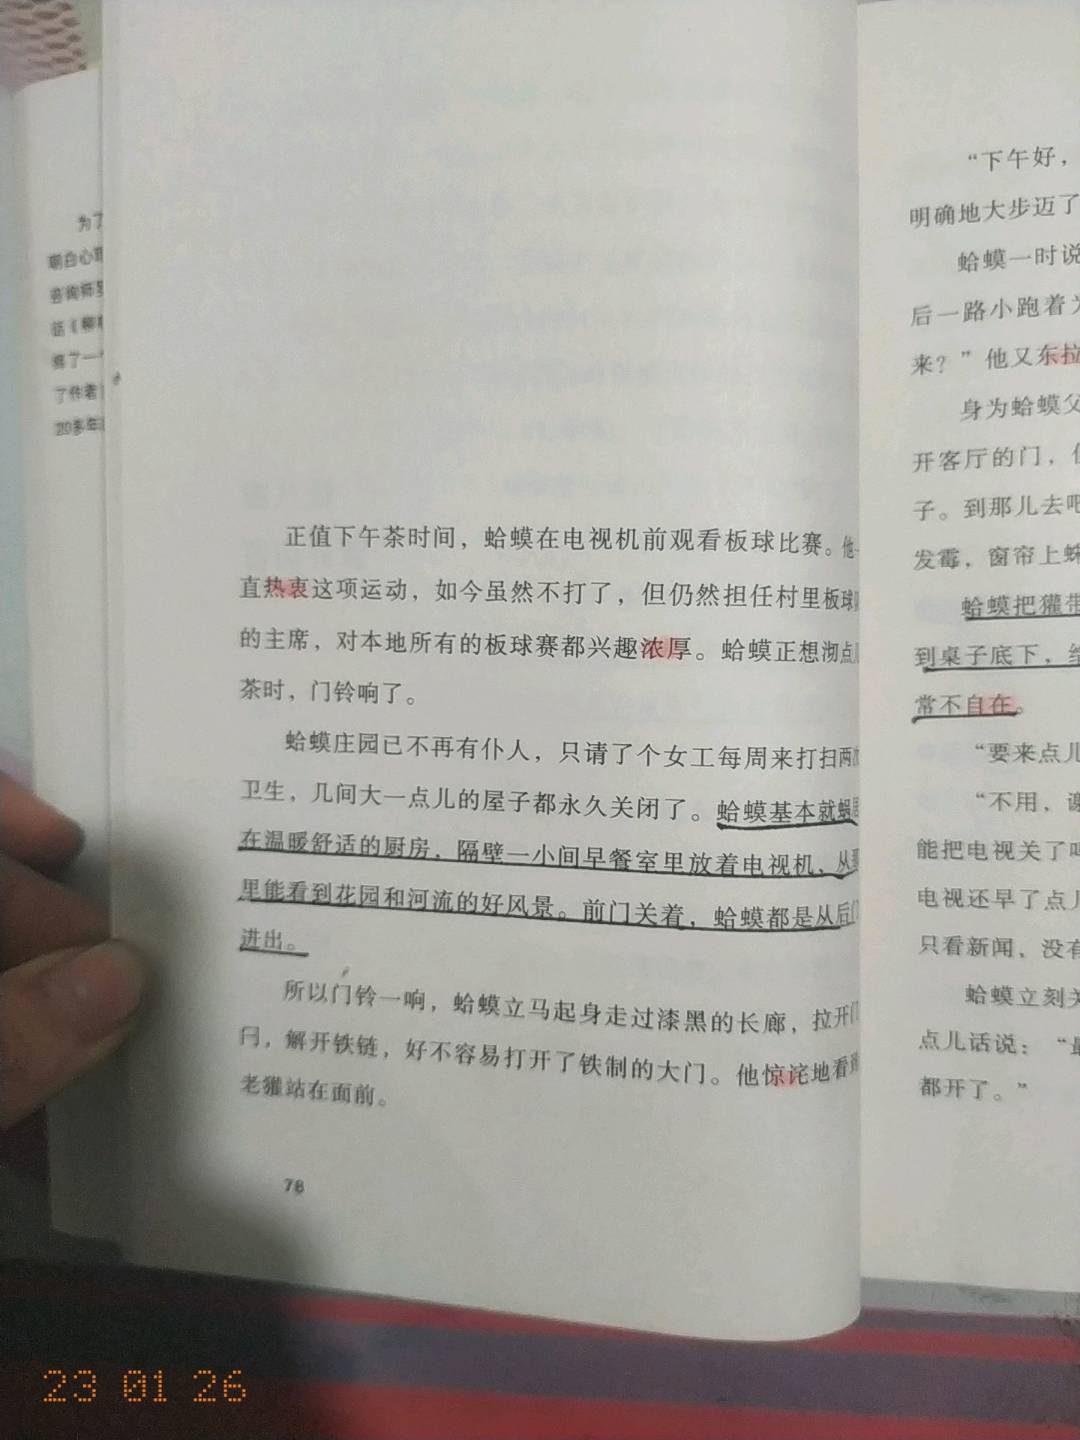 为了
明白心理
咨询师
括《柳林
了作者
20多年
正值下午茶时间，蛤蟆在电视机前观看板球比赛。他一
直热衷这项运动，如今虽然不打了，但仍然担任村里板球队
的主席，对本地所有的板球赛都兴趣浓厚。蛤蟆正想沏点儿
茶时，门铃响了。
蛤蟆庄园已不再有仆人，只请了个女工每周来打扫两次
卫生，几间大一点儿的屋子都永久关闭了。蛤蟆基本就蜗居
在温暖舒适的厨房，隔壁一小间早餐室里放着电视机，从那
里能看到花园和河流的好风景。前门关着，蛤蟆都是从后门
进出。
所以门铃一响，蛤蟆立马起身走过漆黑的长廊，拉开门
闩，解开铁链，好不容易打开了铁制的大门。他惊诧地看到
老獾站在面前。
78
“下午好，
明确地大步迈了
蛤蟆一时说
后一路小跑着
来？”他又东拉
身为蛤蟆父
开客厅的门，
子。到那儿去吧
发霉，窗帘上蛛
蛤蟆把獾带
到桌子底下，给
常不自在。
“要来点儿
“不用，谢
能把电视关了吗
电视还早了点儿
只看新闻，没有
蛤蟆立刻关
点儿话说：“最
都开了。”
23 01 26